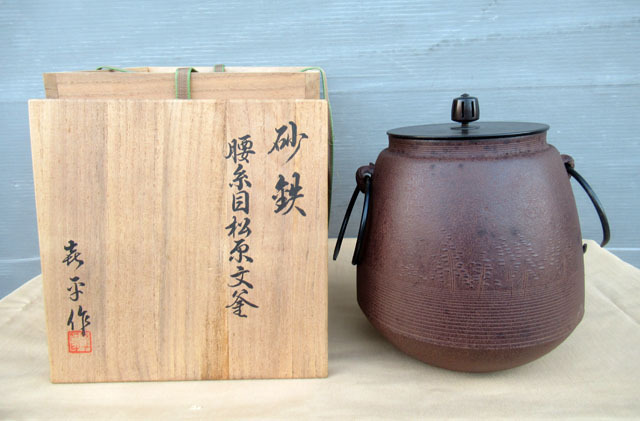 砂鉄
腰糸目松原文釜
㐂平作